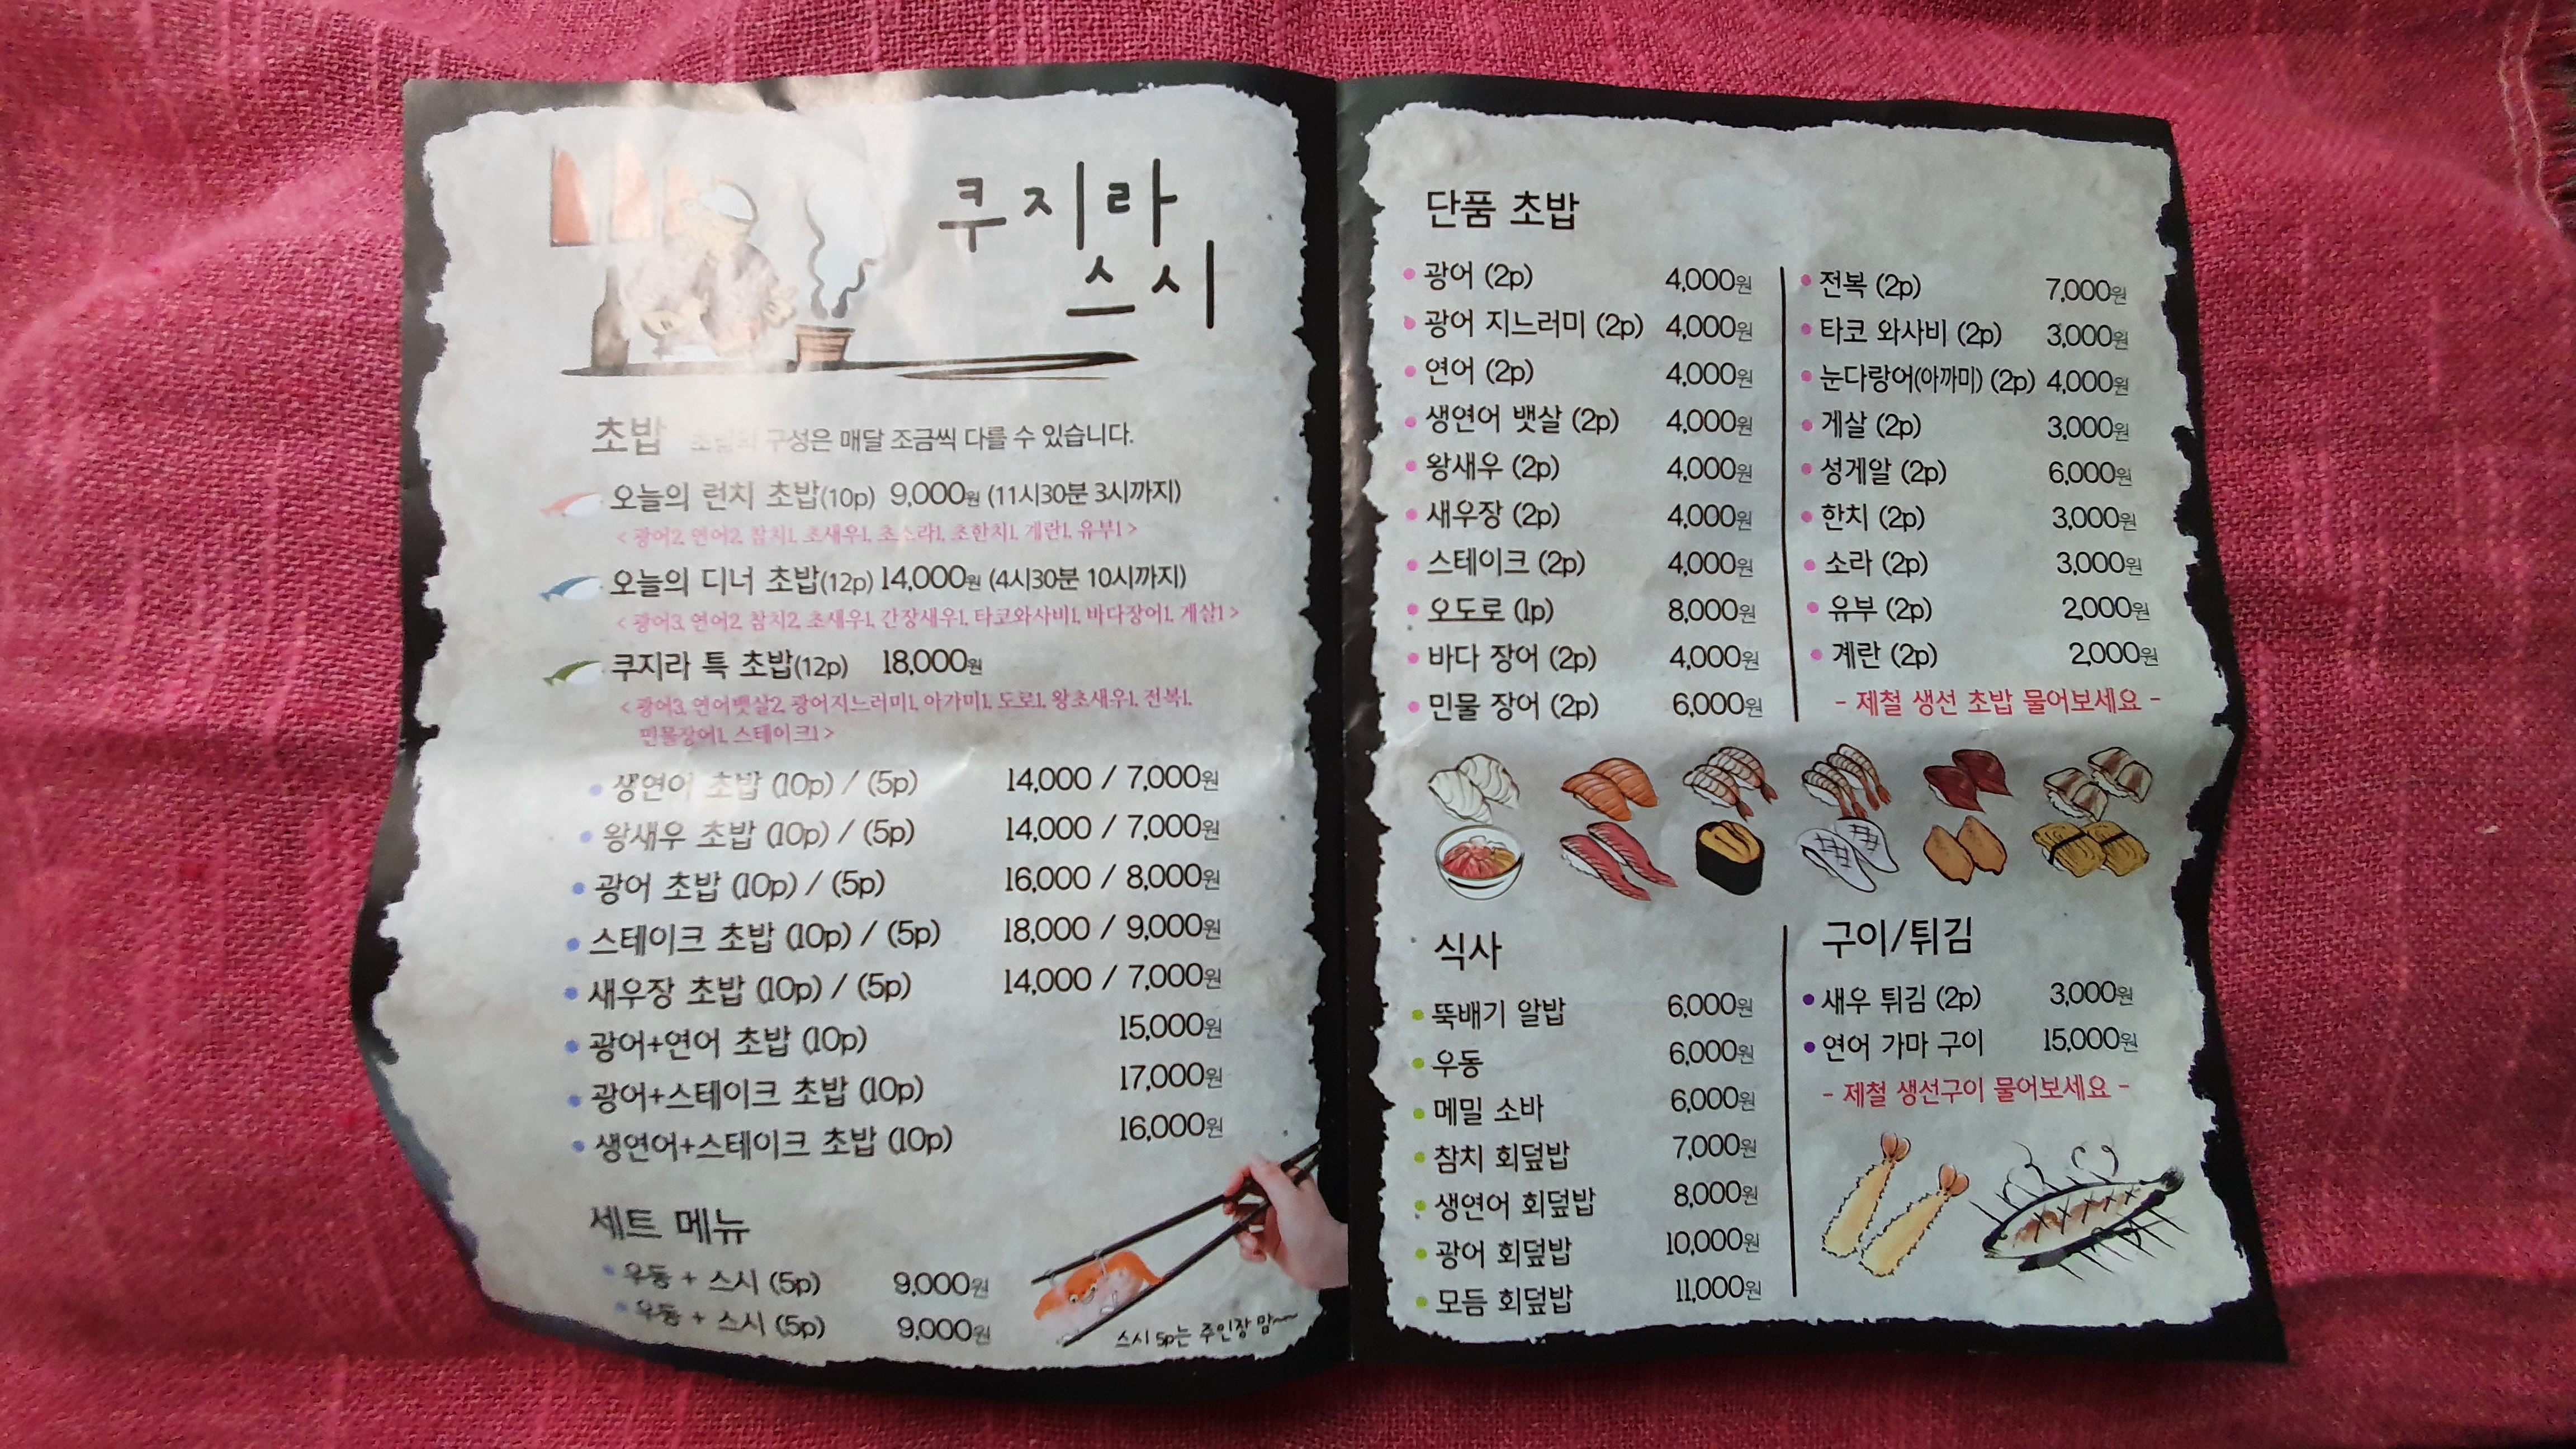 쿠지라
스시
초밥 초밥의 구성은 매달 조금씩 다를 수 있습니다.
오늘의 런치 초밥(10p) 9,000원 (11시30분 3시까지)
< 광어2, 연어2, 참치1, 초새우1, 초소라1, 초한치1, 계란1, 유부1 >
오늘의 디너 초밥(12p) 14,000원 (4시30분 10시까지)
< 광어3, 연어2, 참치2, 초새우1, 간장새우1, 타코와사비1, 바다장어1, 게살1 >
쿠지라 특 초밥(12p) 18,000원
< 광어3, 연어뱃살2, 광어지느러미1, 아가미1, 도로1, 왕초새우1, 전복1,
민물장어1, 스테이크1 >
생연어 초밥 (10p) / (5p) 14,000 / 7,000원
왕새우 초밥 (10p) / (5p) 14,000 / 7,000원
광어 초밥 (10p) / (5p) 16,000 / 8,000원
스테이크 초밥 (10p) / (5p) 18,000 / 9,000원
새우장 초밥 (10p) / (5p) 14,000 / 7,000원
광어+연어 초밥 (10p) 15,000원
광어+스테이크 초밥 (10p) 17,000원
생연어+스테이크 초밥 (10p) 16,000원
세트 메뉴
우동 + 스시 (5p) 9,000원
우동 + 스시 (5p) 9,000원
스시 5p는 주인장 맘~
단품 초밥
광어 (2p) 4,000원
광어 지느러미 (2p) 4,000원
연어 (2p) 4,000원
생연어 뱃살 (2p) 4,000원
왕새우 (2p) 4,000원
새우장 (2p) 4,000원
스테이크 (2p) 4,000원
오도로 (1p) 8,000원
바다 장어 (2p) 4,000원
민물 장어 (2p) 6,000원
전복 (2p) 7,000원
타코 와사비 (2p) 3,000원
눈다랑어(아까미) (2p) 4,000원
게살 (2p) 3,000원
성게알 (2p) 6,000원
한치 (2p) 3,000원
소라 (2p) 3,000원
유부 (2p) 2,000원
계란 (2p) 2,000원
- 제철 생선 초밥 물어보세요 -
식사
뚝배기 알밥 6,000원
우동 6,000원
메밀 소바 6,000원
참치 회덮밥 7,000원
생연어 회덮밥 8,000원
광어 회덮밥 10,000원
모듬 회덮밥 11,000원
구이/튀김
새우 튀김 (2p) 3,000원
연어 가마 구이 15,000원
- 제철 생선구이 물어보세요 -